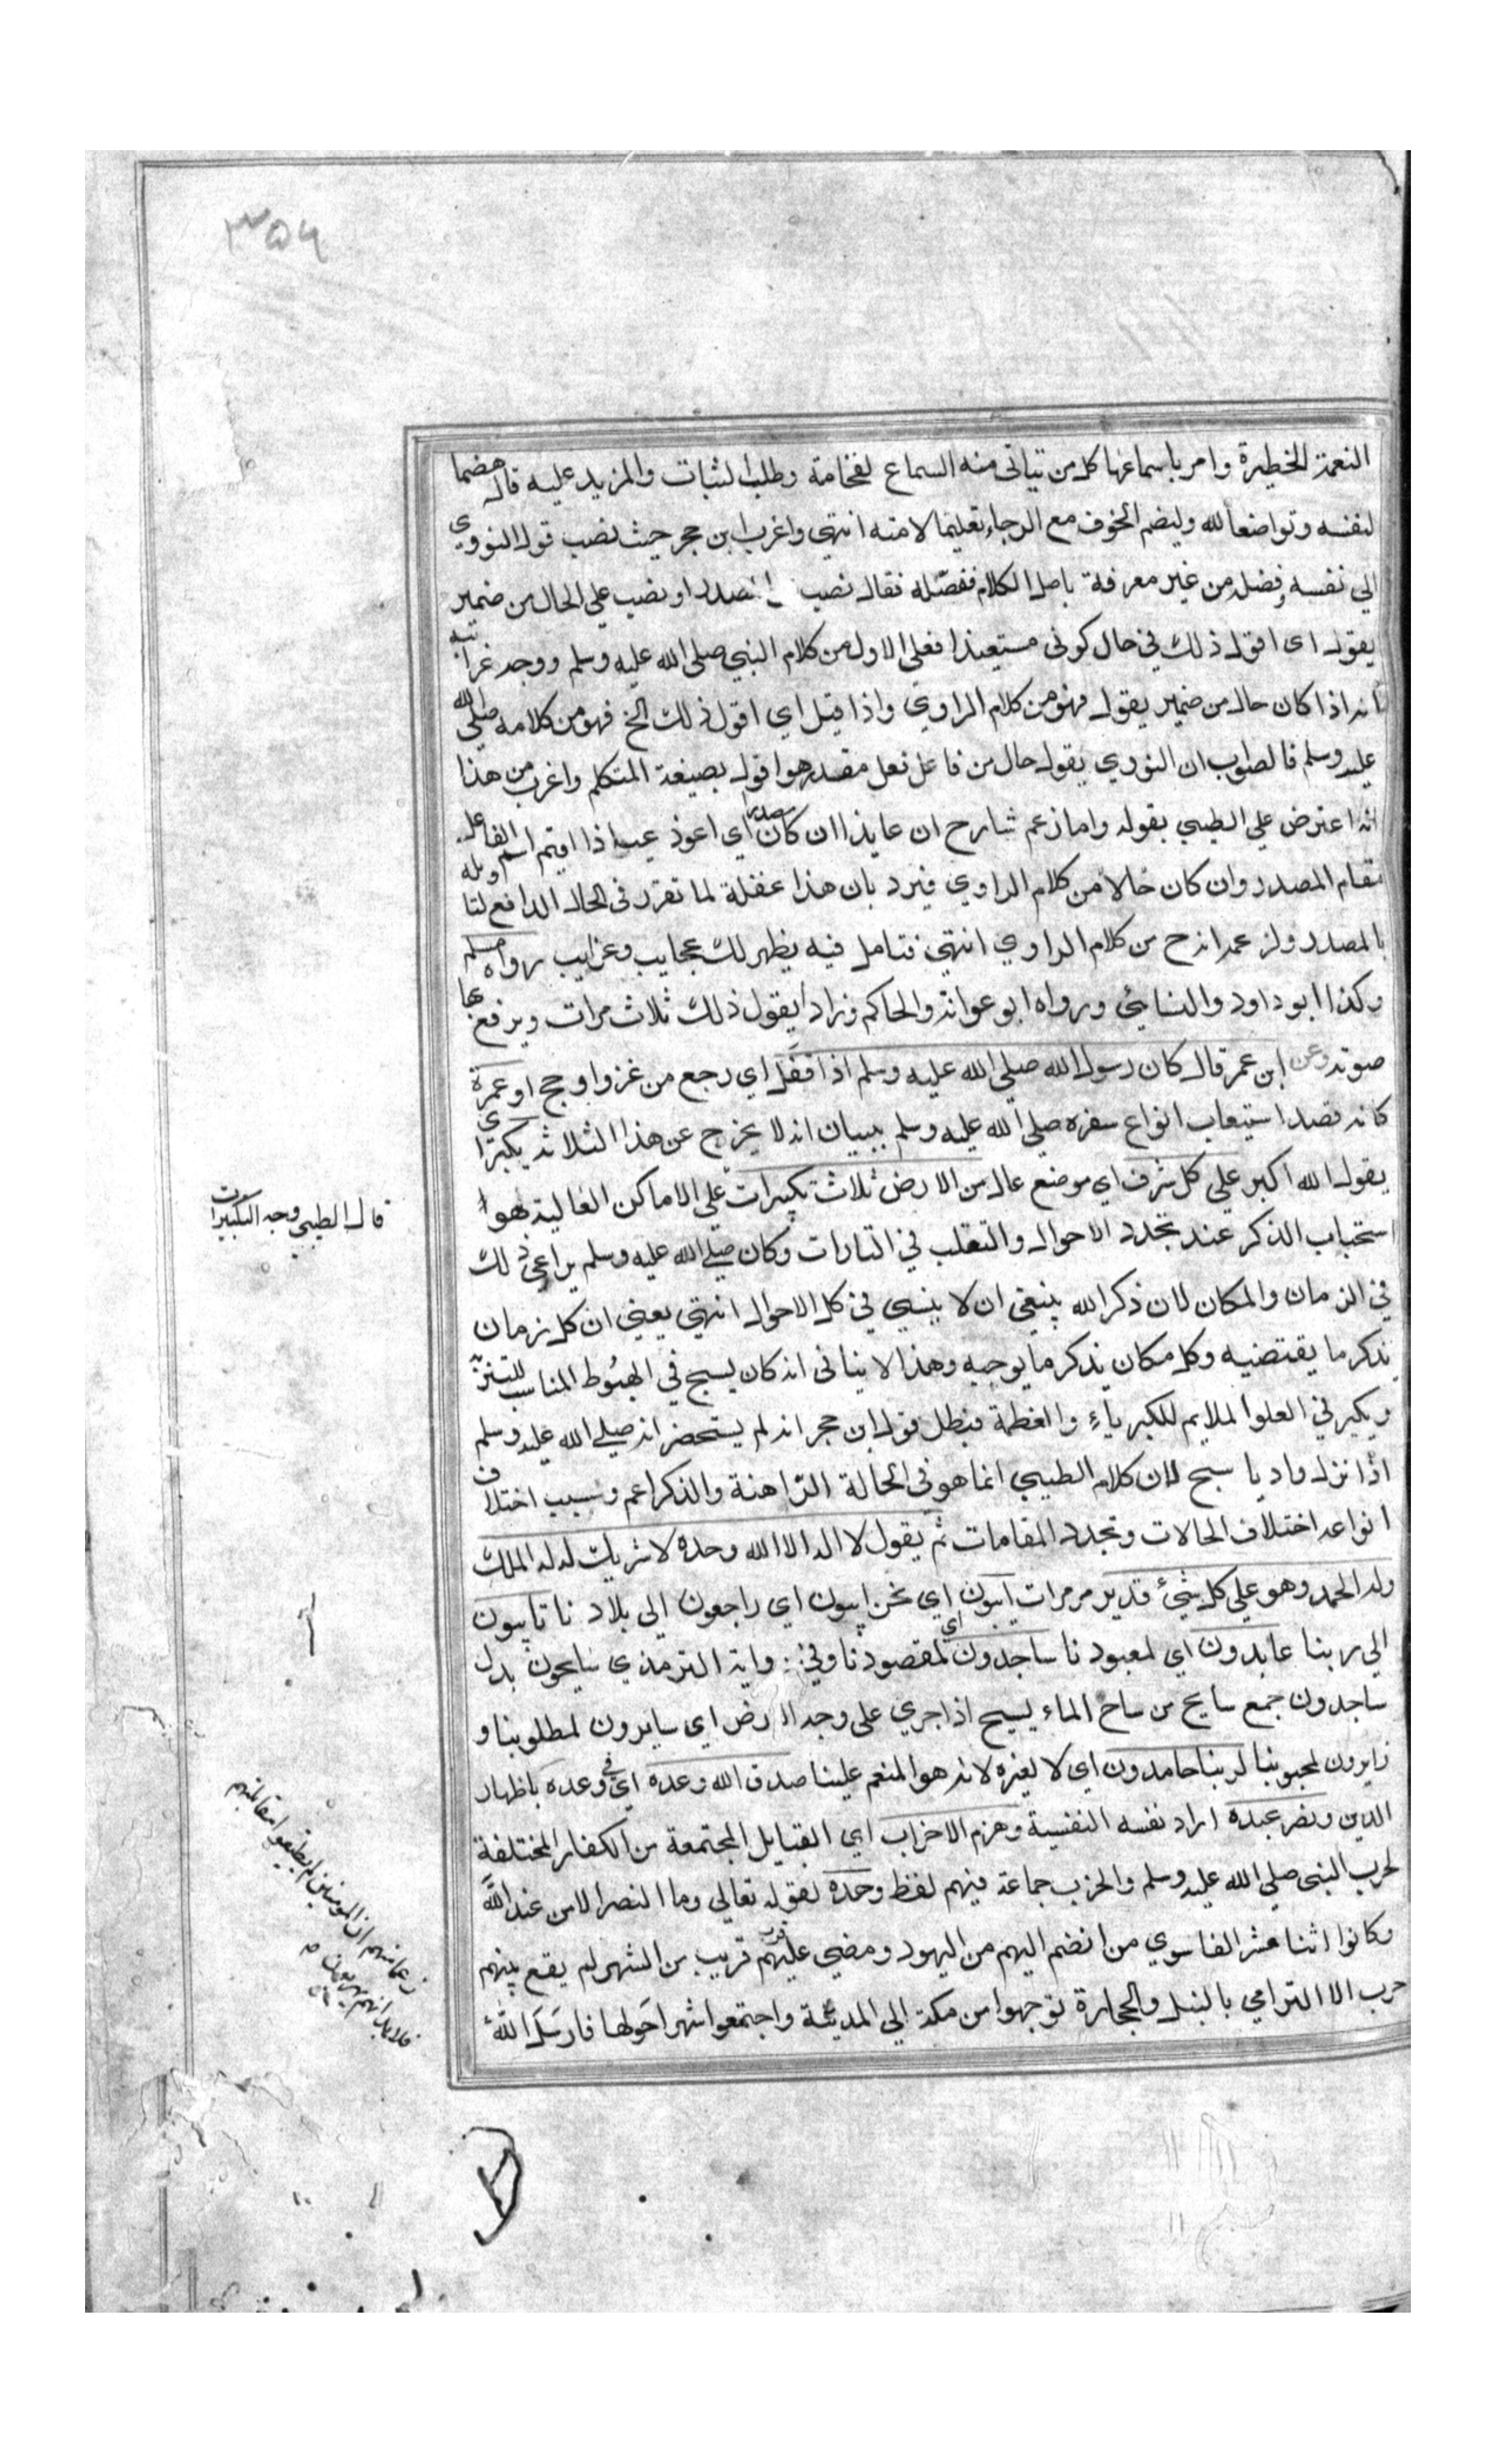 ٣٥٦
النعمة الخطيرة وامر باسماعها كل من يتاتى منه السماع لفخامته وطلب الثبات والمزيد عليه قاله هضما
لنفسه وتواضعا لله وليضم الخوف مع الرجاء تعليما لامته انتهي واغرب ابن حجر حيث نصب قول النووي
الي نفسه وفصل من غير معرفة باصل الكلام ففصّله فقال نصب المصدر او نصب علي الحال من ضمير
يقول اى اقول ذلك في حال كونى مستعيذا فعلى الاول من كلام النبي صلى الله عليه وسلم ووجه غرابته
انه اذا كان حال من ضمير يقول فهو من كلام الراوي واذا قيل اي اقول ذلك الخ فهو من كلامه صلي الله
عليه وسلم فالصواب ان النووي يقول حال من فاعل فعل مقدر هو اقول بصيغة المتكلم واغرب من هذا
انه اعترض علي الطيبي بقوله واما زعم شارح ان عايذا ان كان مصدرا اي اعوذ عياذا اقيم اسم الفاعل
مقام المصدر وان كان حالا من كلام الراوي فيرد بان هذا غفلة لما تقرر في الحال الدافع لتاويله
بالمصدر ولزعمه انه ح من كلام الراوي انتهي فتامل فيه يظهر لك عجايب وغرايب رواه مسلم
وكذا ابو داود والنسايئ ورواه ابو عوانة والحاكم وزاد يقول ذلك ثلاث مرات ويرفع بها
صوته وعن ابن عمر قال كان رسول الله صلي الله عليه وسلم اذا قفل اي رجع من غزو او حج او عمرة
كانه قصد استيعاب انواع سفره صلي الله عليه وسلم ببيان انه لا يخرج عن هذا الثلاثة يكبر اي
يقول الله اكبر علي كل شرف اي موضع عال من الارض ثلاث تكبيرات علي الاماكن العالية هو
قال الطيبي وجه التكبيرات
استحباب الذكر عند تجدد الاحوال والتقلب في التارات وكان صلي الله عليه وسلم يراعي ذلك
في الزمان والمكان لان ذكر الله ينبغي ان لا ينسي في كل الاحوال انتهي يعني ان كل زمان
يذكر ما يقتضيه وكل مكان يذكر ما يوجبه وهذا لا ينافى انه كان يسبح في الهبوط المناسب للتنزيه
ويكبر في العلو الملايم للكبرياء والعظمة فبطل قول ابن حجر انه لم يستحضر انه صلي الله عليه وسلم
اذا نزل واديا سبح لان كلام الطيبي انما هو في الحالة الراهنة والذكر اعم وسبب اختلاف
انواعه اختلاف الحالات وتجدد المقامات ثم يقول لا اله الا الله وحده لا شريك له له الملك
وله الحمد وهو علي كل شيئ قدير مر مرات ايبون اي نحن ايبون اي راجعون الى بلادنا تايبون
الي ربنا عابدون اي لمعبودنا ساجدون اي لمقصودنا وفي رواية الترمذي سايحون بدل
ساجدون جمع سايح من ساح الماء يسيح اذا جري على وجه الارض اي سايرون لمطلوبنا و
زايرون لمحبوبنا لربنا حامدون اي لا لغيره لانه هو المنعم علينا صدق الله وعده اي في وعده باظهار
الدين ونصر عبده اراد نفسه النفيسة وهزم الاحزاب اي القبايل المجتمعة من الكفار المختلفة
لحرب النبي صلي الله عليه وسلم والحزب جماعة فيهم لفظ وحده لقوله تعالي وما النصر الا من عند الله
وكانوا اثنا عشر الفا سوي من انضم اليهم من اليهود ومضي عليهم قرب قريب من الشهر لم يقع بينهم
حرب الا الترامي بالنبل والحجارة
زعما منهم ان المومنين لم يطيقوا مقابلتهم
فلا بد انهم يهربون
توجهوا من مكة الي المدينة واجتمعوا شهرا حولها فارسل الله